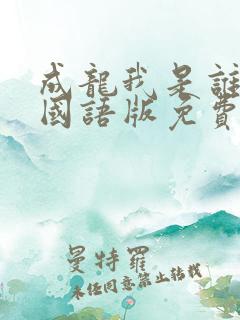 成龍我是誰
國語版免費
曼特羅
未任同意禁止轉載